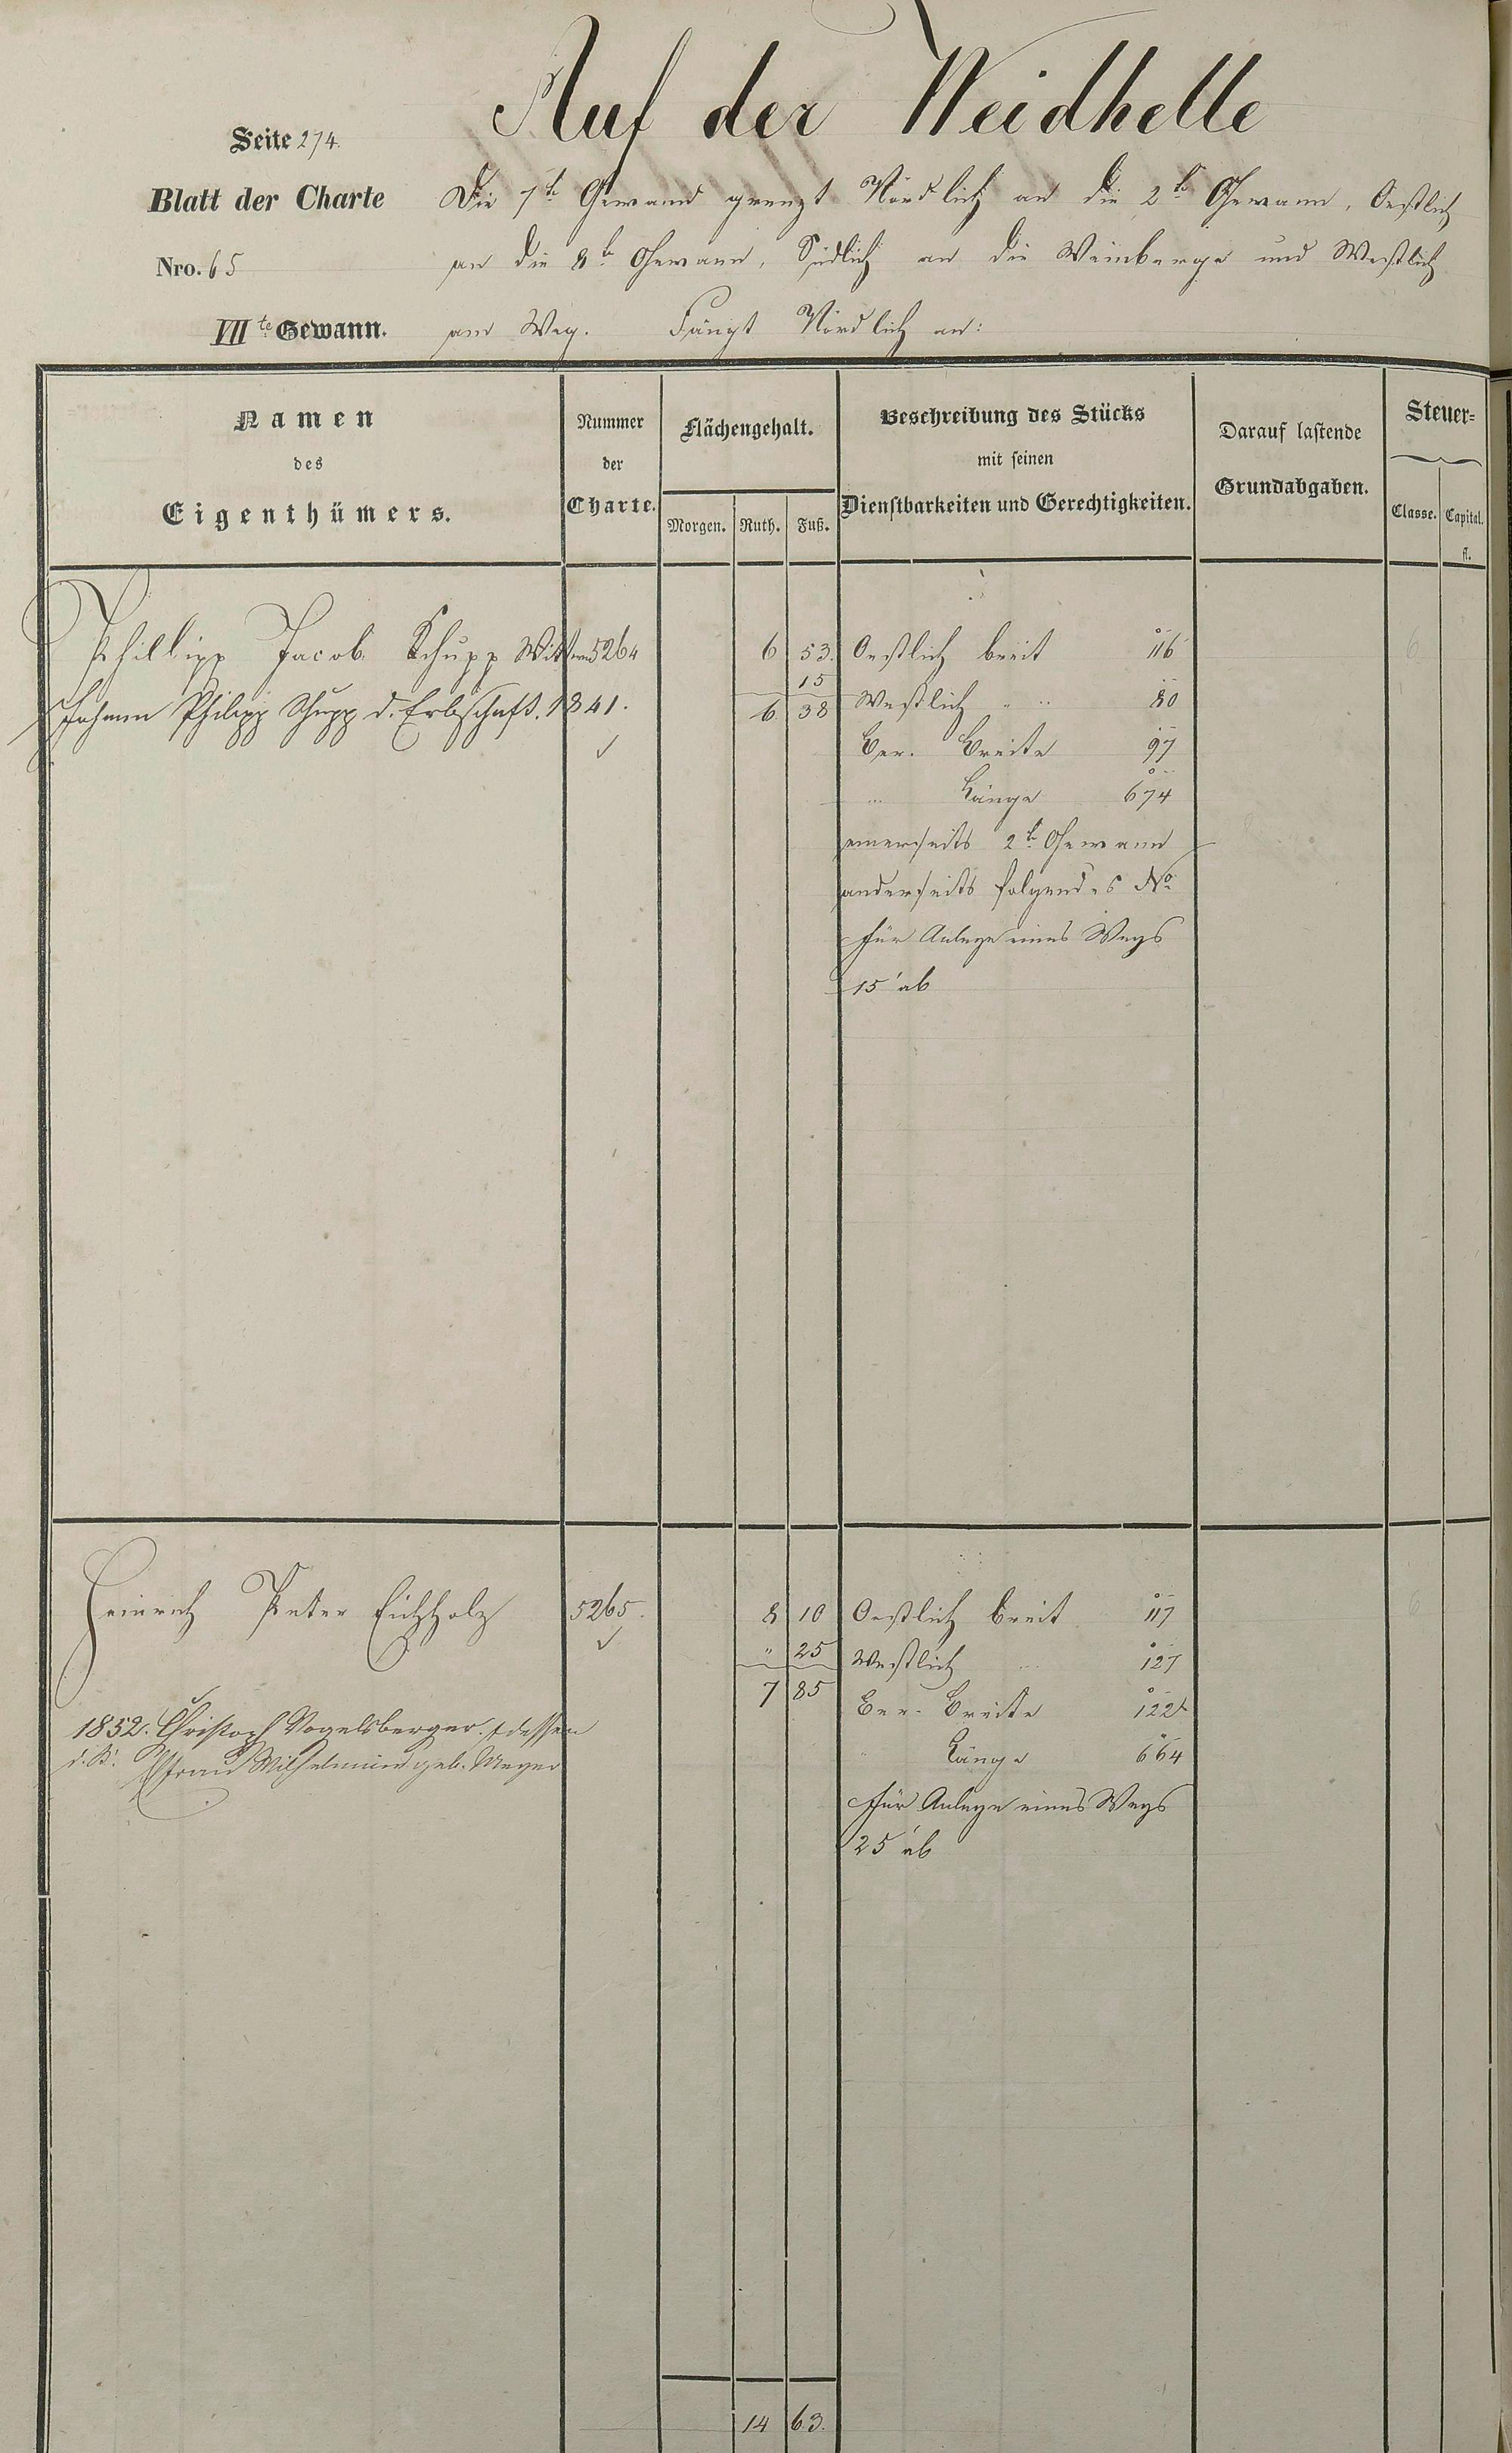 Auf der Weidhelle
Seite 274.
Blatt der Charte
Nro. 65
VII te Gewann.
Die 7te Gewann grenzt Nördlich an die 2te Gewann, Oestlich
an die 8te Gewann, Südlich an die Weinberge und Westlich
am Weg. Fängt Nördlich an:
Namen
des
Eigenthümers.
Nummer
der
Charte.
Flächengehalt.
Morgen. Ruth. Fuß.
Beschreibung des Stücks
mit seinen
Dienstbarkeiten und Gerechtigkeiten.
Darauf lastende
Grundabgaben.
Steuer=
Classe. Capital.
fl.
Phillipp Jacob Schupp Wittwe 5264 6 53. Oestlich breit 116 6
15
Johann Philipp Schupp d. Erbschaft. 1841. 6 38 Westlich " " 80
Ber. Breite 97
" Länge 674
einerseits 2te Gewann
anderseits folgendes No
für Anlage eines Wegs
15' ab
Heinrich Peter Eichholz 5265. 8 10 Oestlich breit 117 6
" 25 Westlich " 127
7 85 Ber. Breite 122
1852. Christoph Vogelsberger. & dessen
d. K. Efrau Wilhelmine geb. Meyer
" Länge 664
für Anlage eines Wegs
25' ab
14 63.